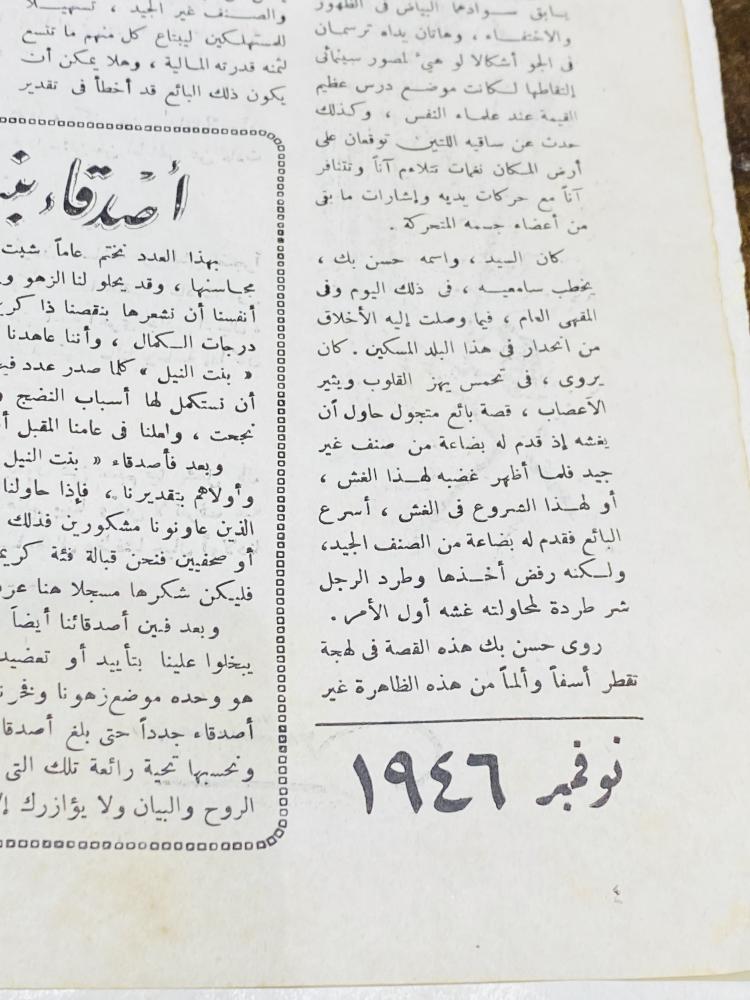 يسابق سوادهما البياض فى الظهور
والاختفاء ، وهاتان يداه ترسمان
فى الجو أشكالا لو هىء لمصور سينمائى
إلتقاطها لكانت موضع درس عظيم
القيمة عند علماء النفس ، وكذلك
حدث عن ساقيه اللتين توقعان على
أرض المكان نغمات تتلاءم آناً وتتنافر
آناً مع حركات يديه وإشارات ما بقى
من أعضاء جسمه المتحركة .
كان السيد ، واسمه حسن بك ،
يخطب سامعيه ، فى ذلك اليوم وفى
المقهى العام ، فيما وصلت إليه الأخلاق
من انحدار فى هذا البلد المسكين . كان
يروى ، فى تحمس يهز القلوب ويثير
الأعصاب ، قصة بائع متجول حاول أن
يغشه إذ قدم له بضاعة من صنف غير
جيد فلما أظهر غضبه لهذا الغش ،
أو لهذا الشروع فى الغش ، أسرع
البائع فقدم له بضاعة من الصنف الجيد،
ولكنه رفض أخذها وطرد الرجل
شر طردة لمحاولته غشه أول الأمر .
روى حسن بك هذه القصة فى لهجة
تقطر أسفاً وألماً من هذه الظاهرة غير
والصنف غير الجيد ، تسهيلا
للمستهلكين ليبتاع كل منهم ما تتسع
لثمنه قدرته المالية ، وهلا يمكن أن
يكون ذلك البائع قد أخطأ فى تقدير
أصدقاء
بهذا العدد نختم عاماً شبت
محاسنها ، وقد يحلو لنا الزهو
أنفسنا أن نشعرها بنقصنا ذا
درجات الكمال ، وأننا عاهدنا
« بنت النيل » كلما صدر عدد
أن نستكمل لها أسباب النضج
نجحت ، واملنا فى عامنا المقبل
وبعد فأصدقاء « بنت النيل
وأولاهم بتقديرنا ، فإذا حاولنا
الذين عاونونا مشكورين فذلك
أو صحفيين فنحن قبالة فئة
فليكن شكرها مسجلا هنا
وبعد فبين أصدقائنا أيضاً
يبخلوا علينا بتأييد أو
هو وحده موضع زهونا
أصدقاء جدداً حتى بلغ
ونحسبها تحية رائعة تلك التى
الروح والبيان ولا يؤازرك
نوفمبر ١٩٤٦
٤